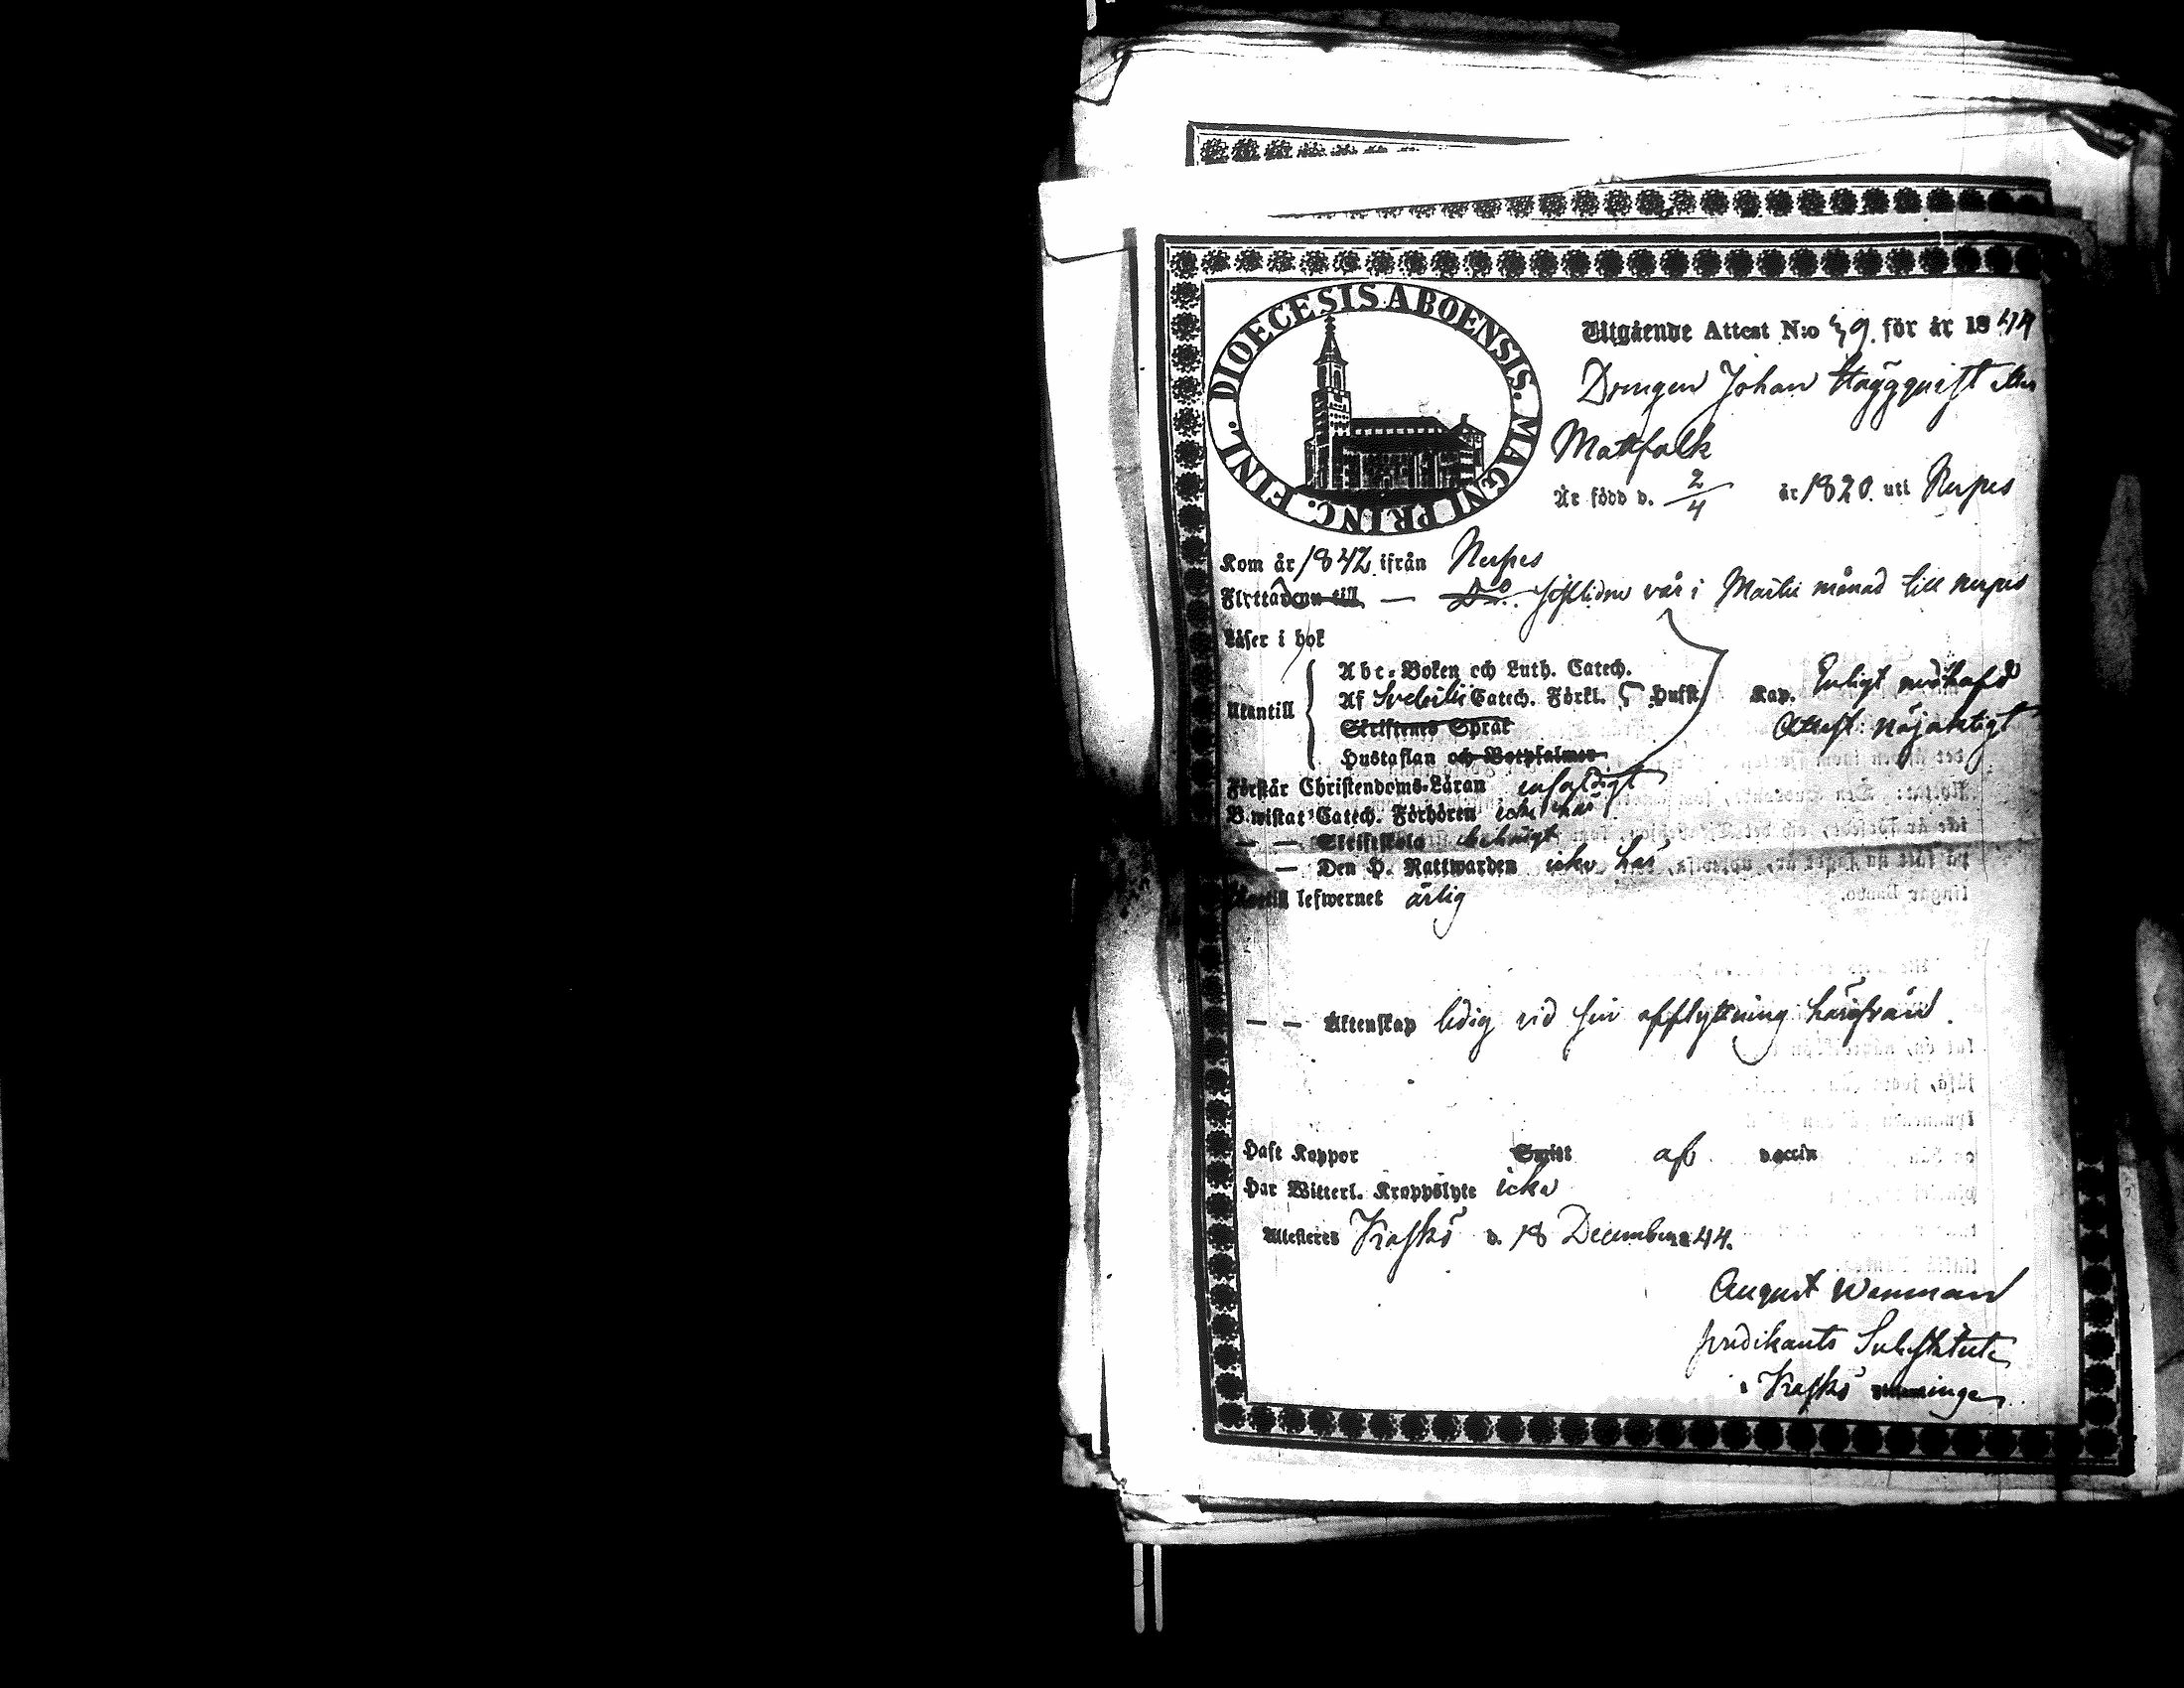 DIOECESIS ABOENSIS. MAGNI PRINC. FINL.
Utgående Attest N:o 39. för år 1844
Drengen Johan Häggqvist eller
Mattfolk
Är född d. 2/4 år 1820. uti Nerpes
Kom år 1842. ifrån Nerpes
Flyttade till — D:o sistlidne vår i Martii månad till Nerpes
Läser i bok
Utantill
Abc-Boken och Luth. Catech.
Af Svebilii Catech. Förkl. 5 Hufst. Kap. Enligt medhafd
Skriftenes Språk Attest: nöjaktigt
Hustaflan och Botpsalmer
Förstår Christendoms-Läran enfaldigt
Bewistat Catech. Förhören icke här
— — Skriftskola behörigt
— Den H. Nattwarden icke här
lefwernet ärlig
— — Äktenskap ledig vid sin afflyttning härifrån.
Haft Koppor Smitt af vaccin
Har Witterl. Kroppslyte icke
Attesteras Kaskö d. 18 December 1844.
August Wenman
predikants Substitut
i Kaskö